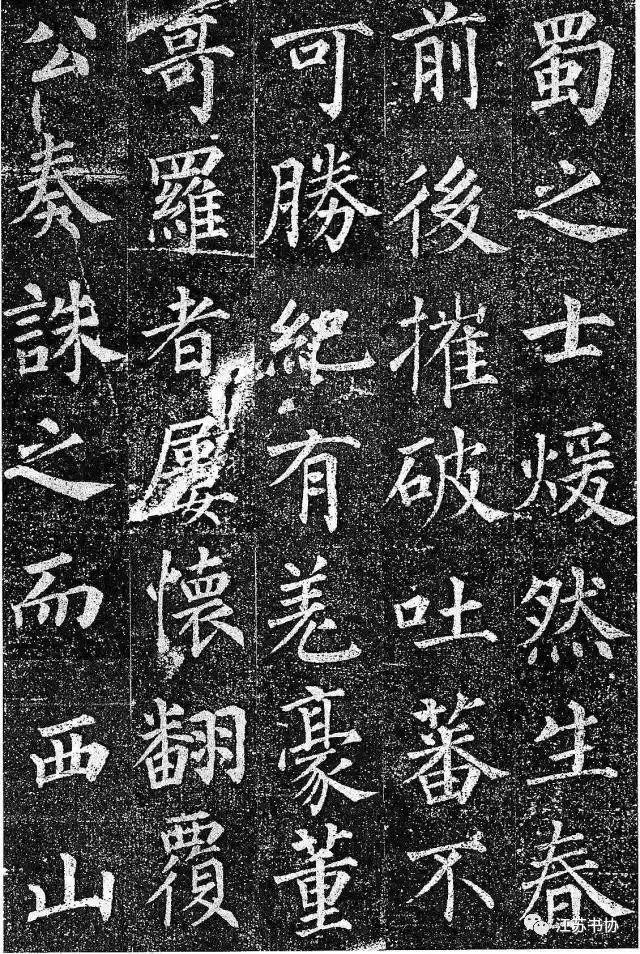 蜀之士煖然生春
前後摧破吐蕃不
可勝紀有羌豪董
哥羅者屢懷翻覆
公奏誅之而西山
江苏书协